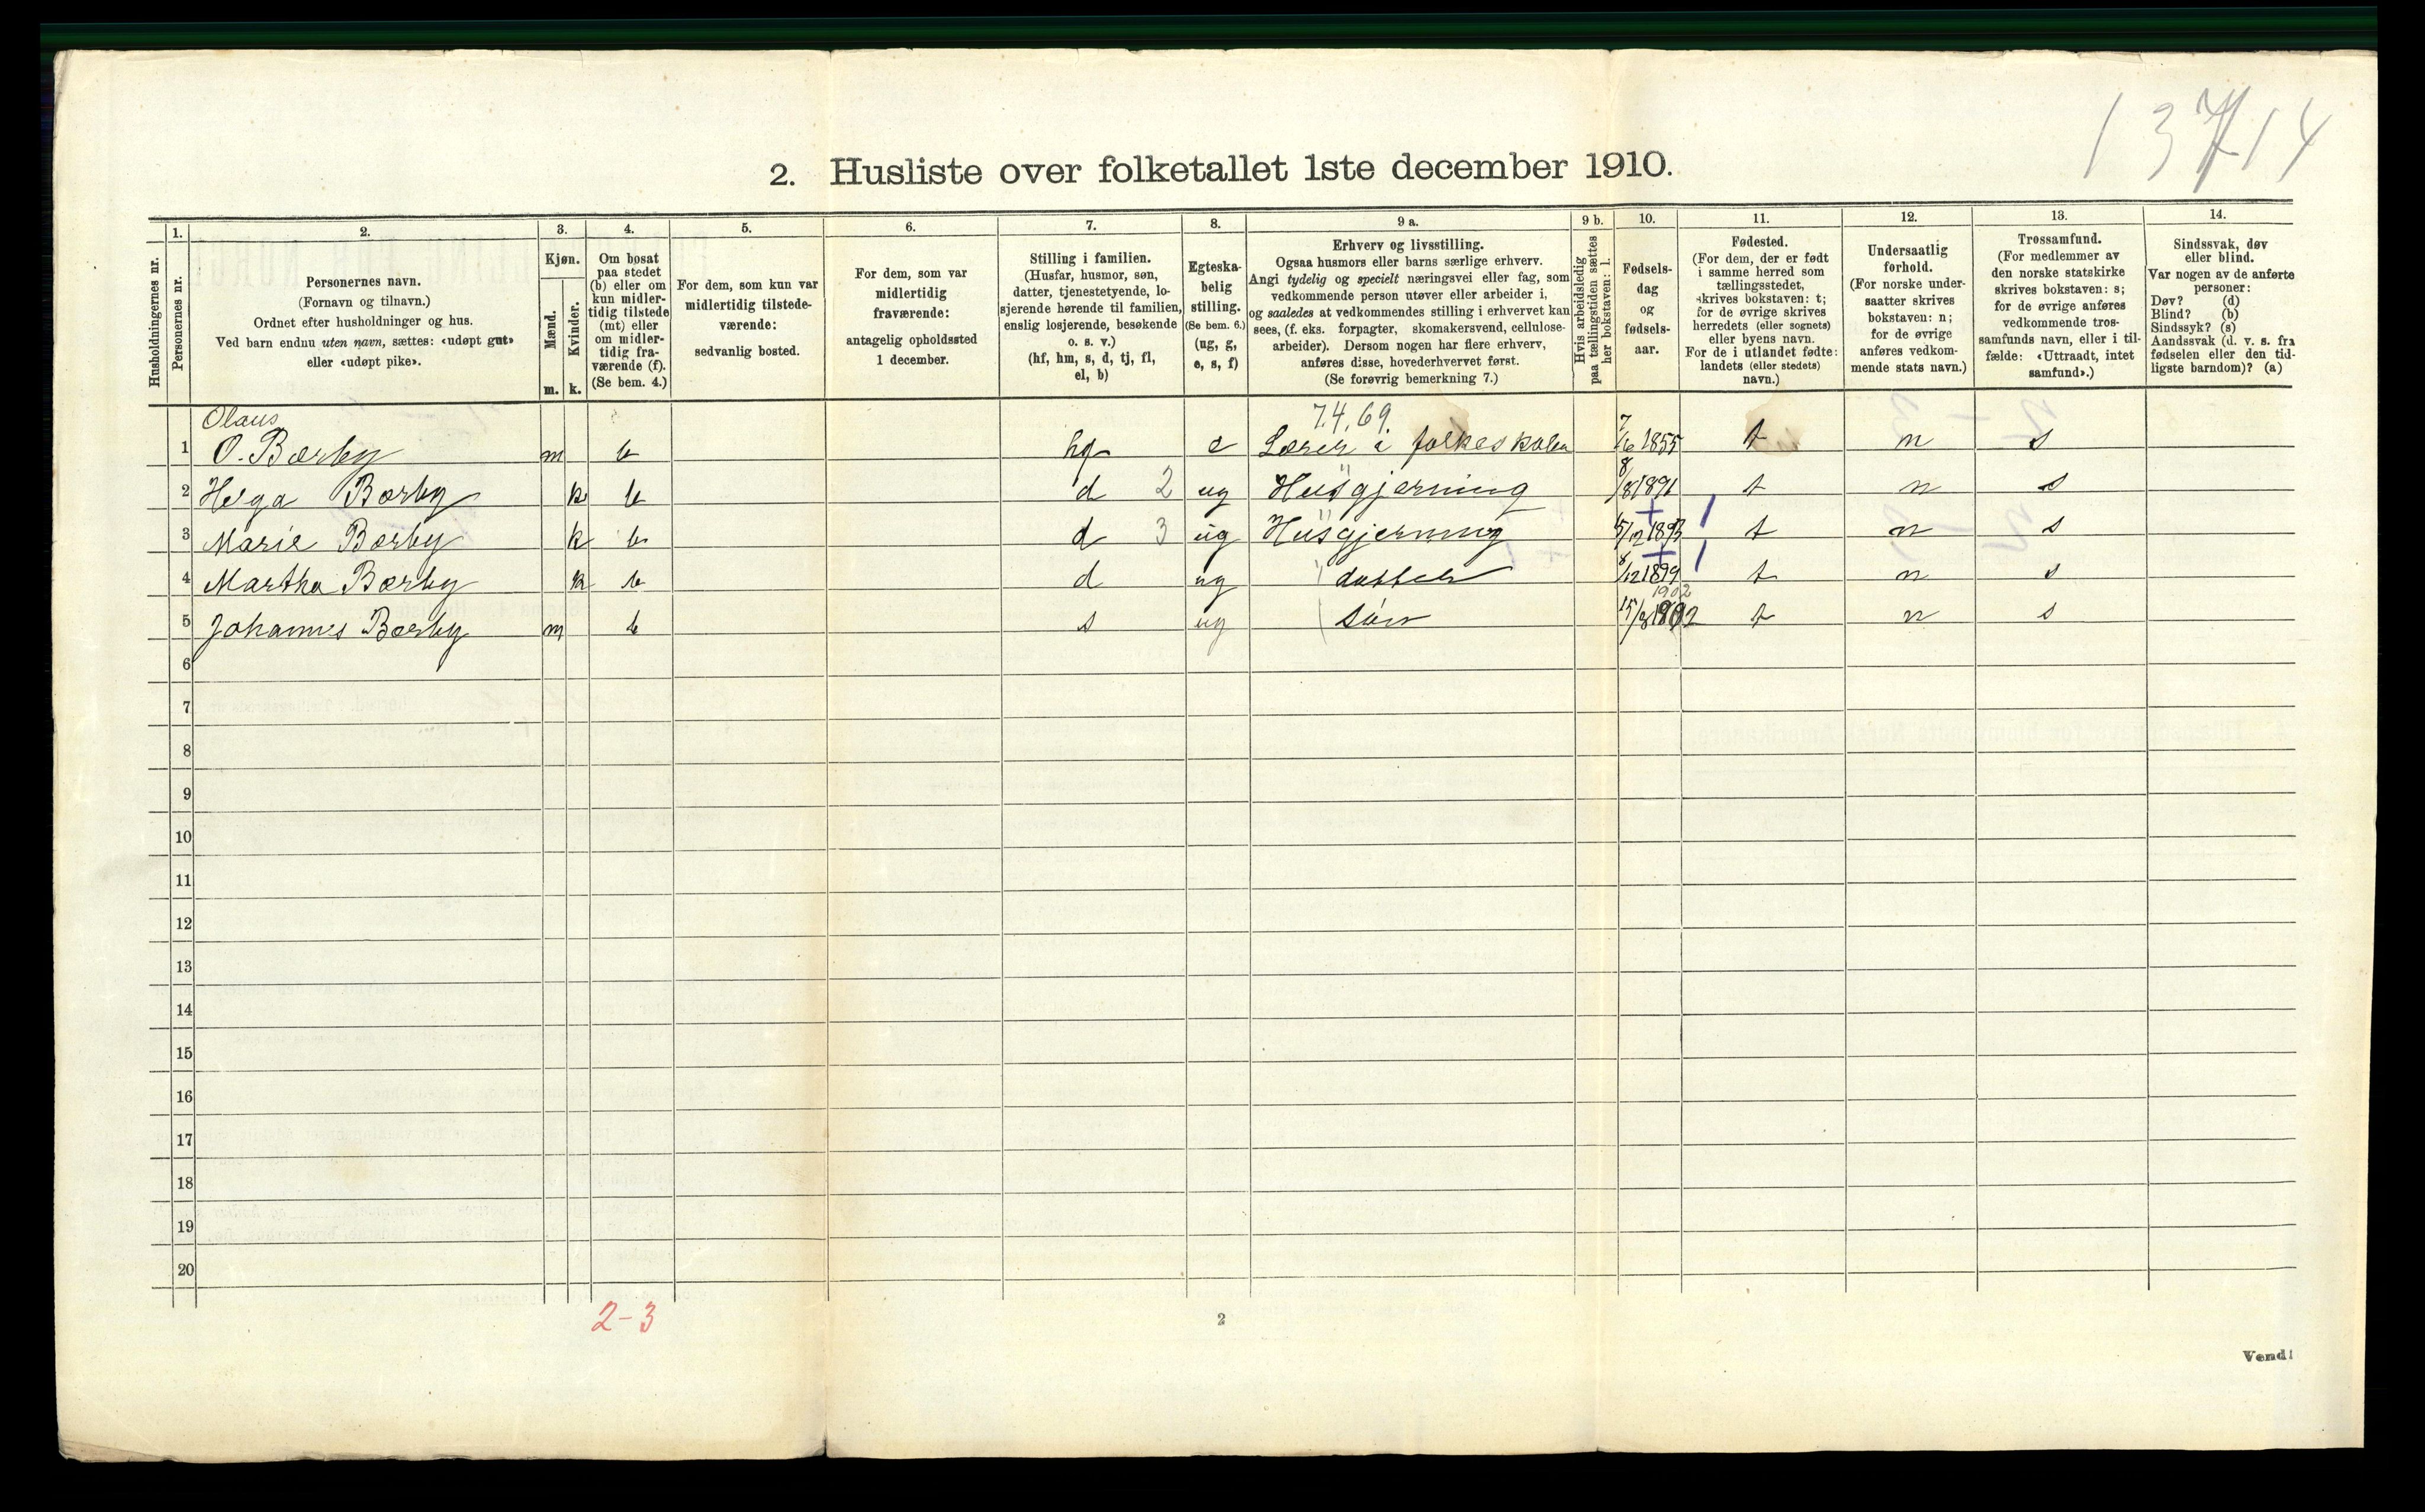 13714
2. Husliste over folketallet 1ste december 1910.
1. 2. 3. 4. 5. 6. 7. 8. 9 a. 9 b. 10. 11. 12. 13. 14.
Husholdningernes nr.
Personernes nr.
Personernes navn.
(Fornavn og tilnavn.)
Ordnet efter husholdninger og hus.
Ved barn endnu uten navn, sættes: «udøpt gut»
eller «udøpt pike».
Kjøn.
Mænd.
m.
Kvinder.
k.
Om bosat
paa stedet
(b) eller om
kun midler-
tidig tilstede
(mt) eller
om midler-
tidig fra-
værende (f).
(Se bem. 4.)
For dem, som kun var
midlertidig tilstede-
værende:
sedvanlig bosted.
For dem, som var
midlertidig
fraværende:
antagelig opholdssted
1 december.
Stilling i familien.
(Husfar, husmor, søn,
datter, tjenestetyende, lo-
sjerende hørende til familien,
enslig losjerende, besøkende
o. s. v.)
(hf, hm, s, d, tj, fl,
el, b)
Egteska-
belig
stilling.
(Se bem. 6.)
(ug, g,
e, s, f)
Erhverv og livsstilling.
Ogsaa husmors eller barns særlige erhverv.
Angi tydelig og specielt næringsvei eller fag, som
vedkommende person utøver eller arbeider i,
og saaledes at vedkommendes stilling i erhvervet kan
sees, (f. eks. forpagter, skomakersvend, cellulose-
arbeider). Dersom nogen har flere erhverv,
anføres disse, hovederhvervet først.
(Se forøvrig bemerkning 7.)
Hvis arbeidsledig
paa tællingstiden sættes
her bokstaven: l.
Fødsels-
dag
og
fødsels-
aar.
Fødested.
(For dem, der er født
i samme herred som
tællingsstedet,
skrives bokstaven: t;
for de øvrige skrives
herredets (eller sognets)
eller byens navn.
For de i utlandet fødte:
landets (eller stedets)
navn.)
Undersaatlig
forhold.
(For norske under-
saatter skrives
bokstaven: n;
for de øvrige
anføres vedkom-
mende stats navn.)
Trossamfund.
(For medlemmer av
den norske statskirke
skrives bokstaven: s;
for de øvrige anføres
vedkommende tros-
samfunds navn, eller i til-
fælde: «Uttraadt, intet
samfund».)
Sindssvak, døv
eller blind.
Var nogen av de anførte
personer:
Døv? (d)
Blind? (b)
Sindssyk? (s)
Aandssvak (d. v. s. fra
fødselen eller den tid-
ligste barndom)? (a)
Olaus 7.4.69.
1 O. Bærby m b hf e Lærer i folkeskolen 7/6 1855 t n s
2 Helga Bærby k b d 2 ug Husgjerning 8/8 1891 t n s
3 Marie Bærby k b d 3 ug Husgjerning 15/12 1893 t n s
4 Martha Bærby k b d ug datter 8/12 1899 t n s
1902
5 Johannes Bærby m b s ug søn 15/8 1902 t n s
6
7
8
9
10
11
12
13
14
15
16
17
18
19
20
2-3
2
Vend!